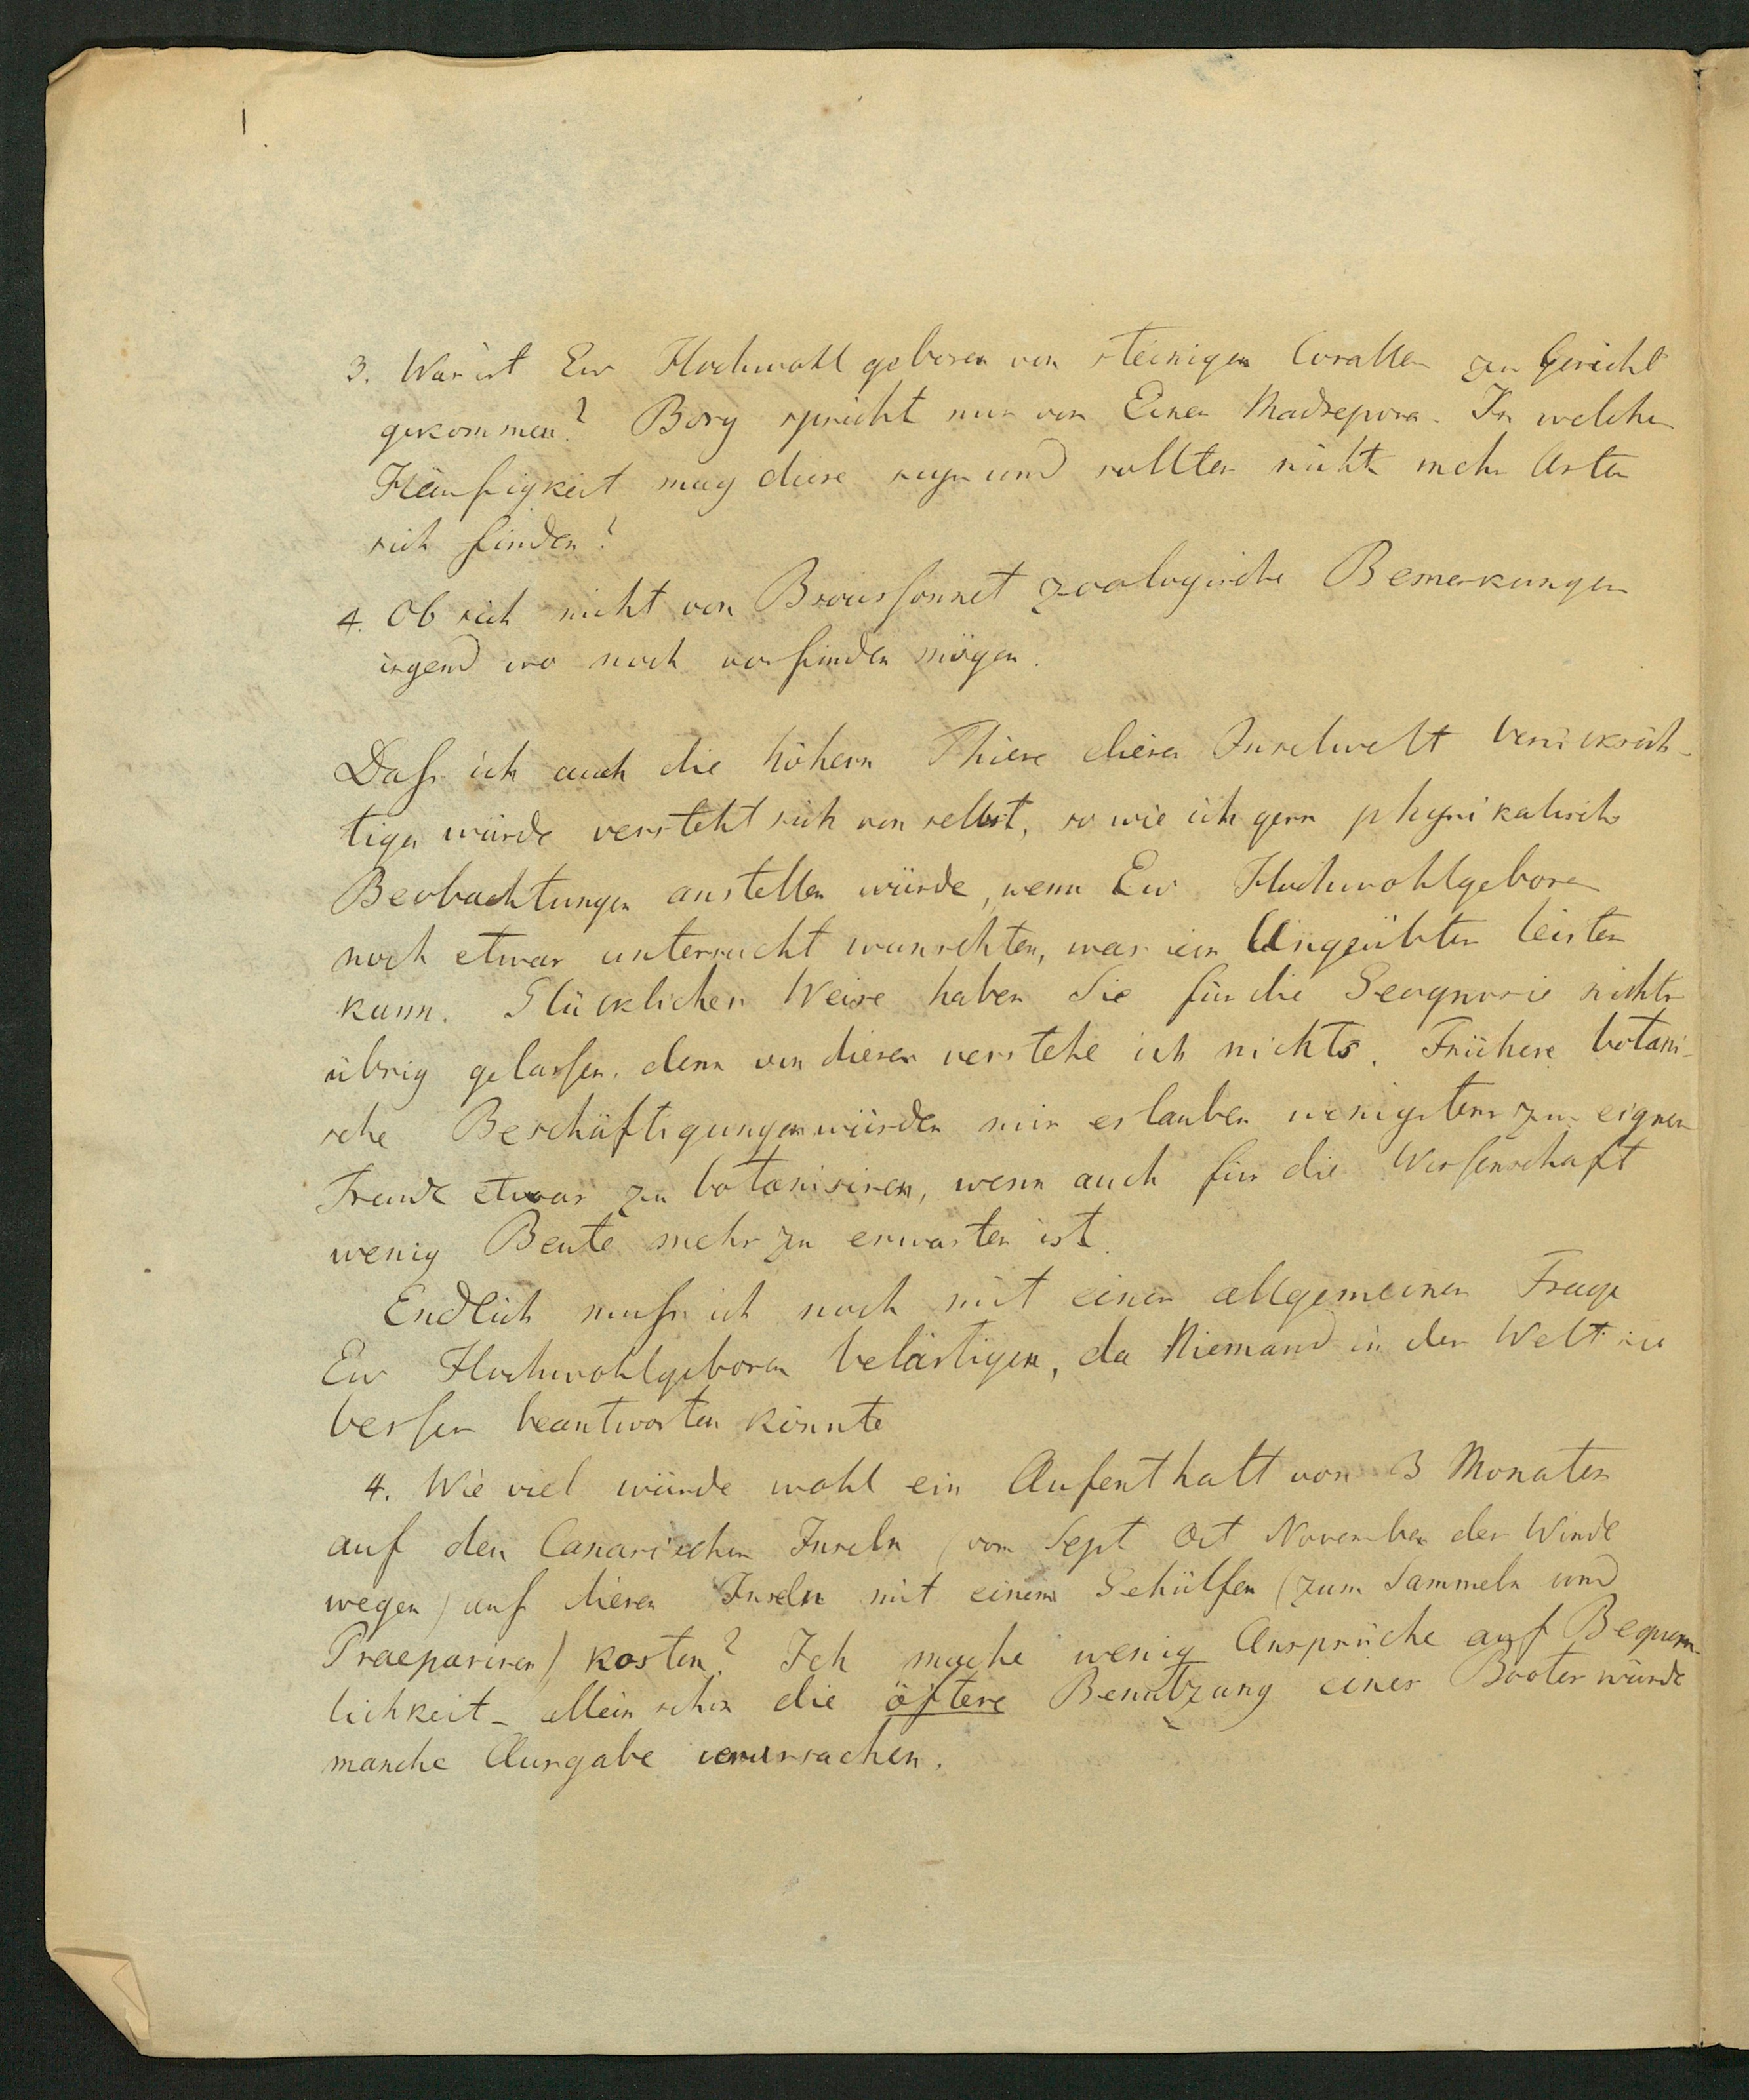 3. Was ist Ew Hochwohlgeboren von steinigen Corallen zu Gesicht
gekommen? Bory spricht nur von Einer Madrepora. In welcher
Häufigkeit mag diese seyn und sollten nicht mehr Arten
sich finden?
4. Ob sich nicht von Broussonnet zoologische Bemerkungen
irgend wo noch vorfinden mögen.
Dass ich auch die höhern Thiere dieser Inselwelt berücksich-
tigen würde versteht sich von selbst, so wie ich gern physikalische
Beobachtungen anstellen würde, wenn Ew Hochwohlgeboren
noch etwas untersucht wünschten, was ein Ungeübter leisten
kann. Glücklicher Weise haben Sie für die Geognosie nichts
übrig gelassen, denn von dieser verstehe ich nichts. Frühere botani-
sche Beschäftigungen würden mir erlauben wenigstens zur eignen
Freude etwas zu botanisiren, wenn auch für die Wissenschaft
wenig Beute mehr zu erwarten ist.
Endlich muss ich noch mit einer allgemeinen Frage
Ew Hochwohlgeboren belästigen, da Niemand in der Welt sie
besser beantworten könnte
4. Wie viel würde wohl ein Aufenthalt von 3 Monaten
auf den Canarischen Inseln (von Sept Oct November der Winde
wegen) auf diesen Inseln mit einem Gehülfen (zum Sammeln und
Praepariren) kosten? Ich mache wenig Ansprüche auf Bequem-
lichkeit – allein schon die öftere Benutzung eines Bootes würde
manche Ausgabe verursachen.